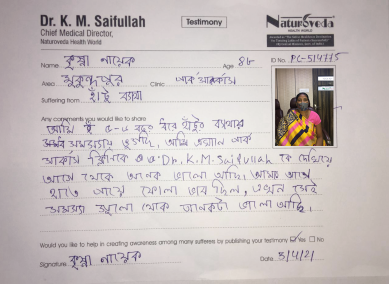 Dr. K. M. Saifullah
Chief Medical Director,
Naturoveda Health World
Testimony
Naturoveda
HEALTH WORLD
Name কৃষ্ণা নায়েক Age 86 ID No. PC-514775
Area মুকুন্দপুর Clinic পার্ক সার্কাস
Suffering from হাঁটু ব্যথা
Any comments you would like to share
আমি ৫-৬ বছর ধরে হাঁটুর ব্যথার
সমস্যায় ভুগছি, আমি
Dr. K. M. Saifullah কে দেখিয়ে
আগে থেকে অনেক ভালো আছি। আমার আগে
ফোলা ভাব ছিল, এখন সেই
সমস্যা থেকে অনেকটা ভালো আছি।
Would you like to help in creating awareness among many sufferers by publishing your testimony Yes No
Signature কৃষ্ণা নায়েক Date 5/4/21